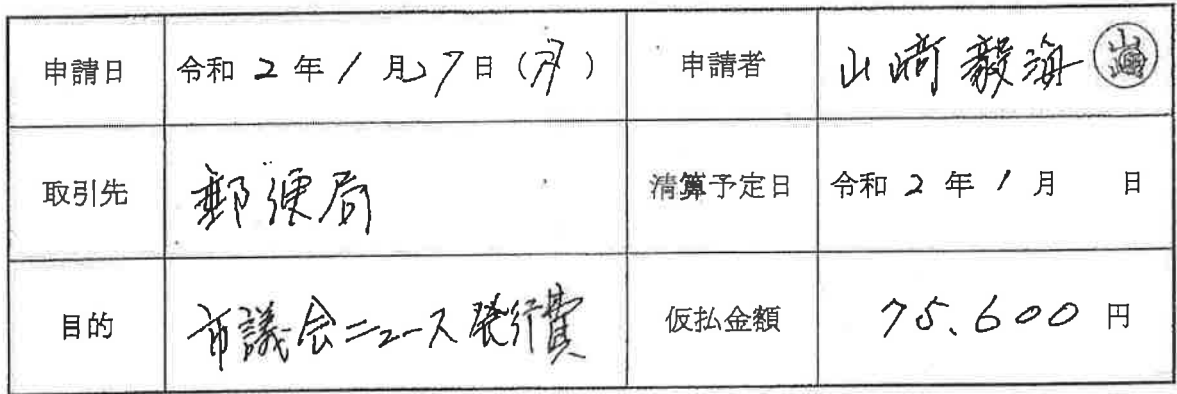 申請日 令和 2 年 1 月 27 日 (月) 申請者 山﨑毅海
取引先 郵便局 清算予定日 令和 2 年 1 月 日
目的 市議会ニュース発行費 仮払金額 75.600 円